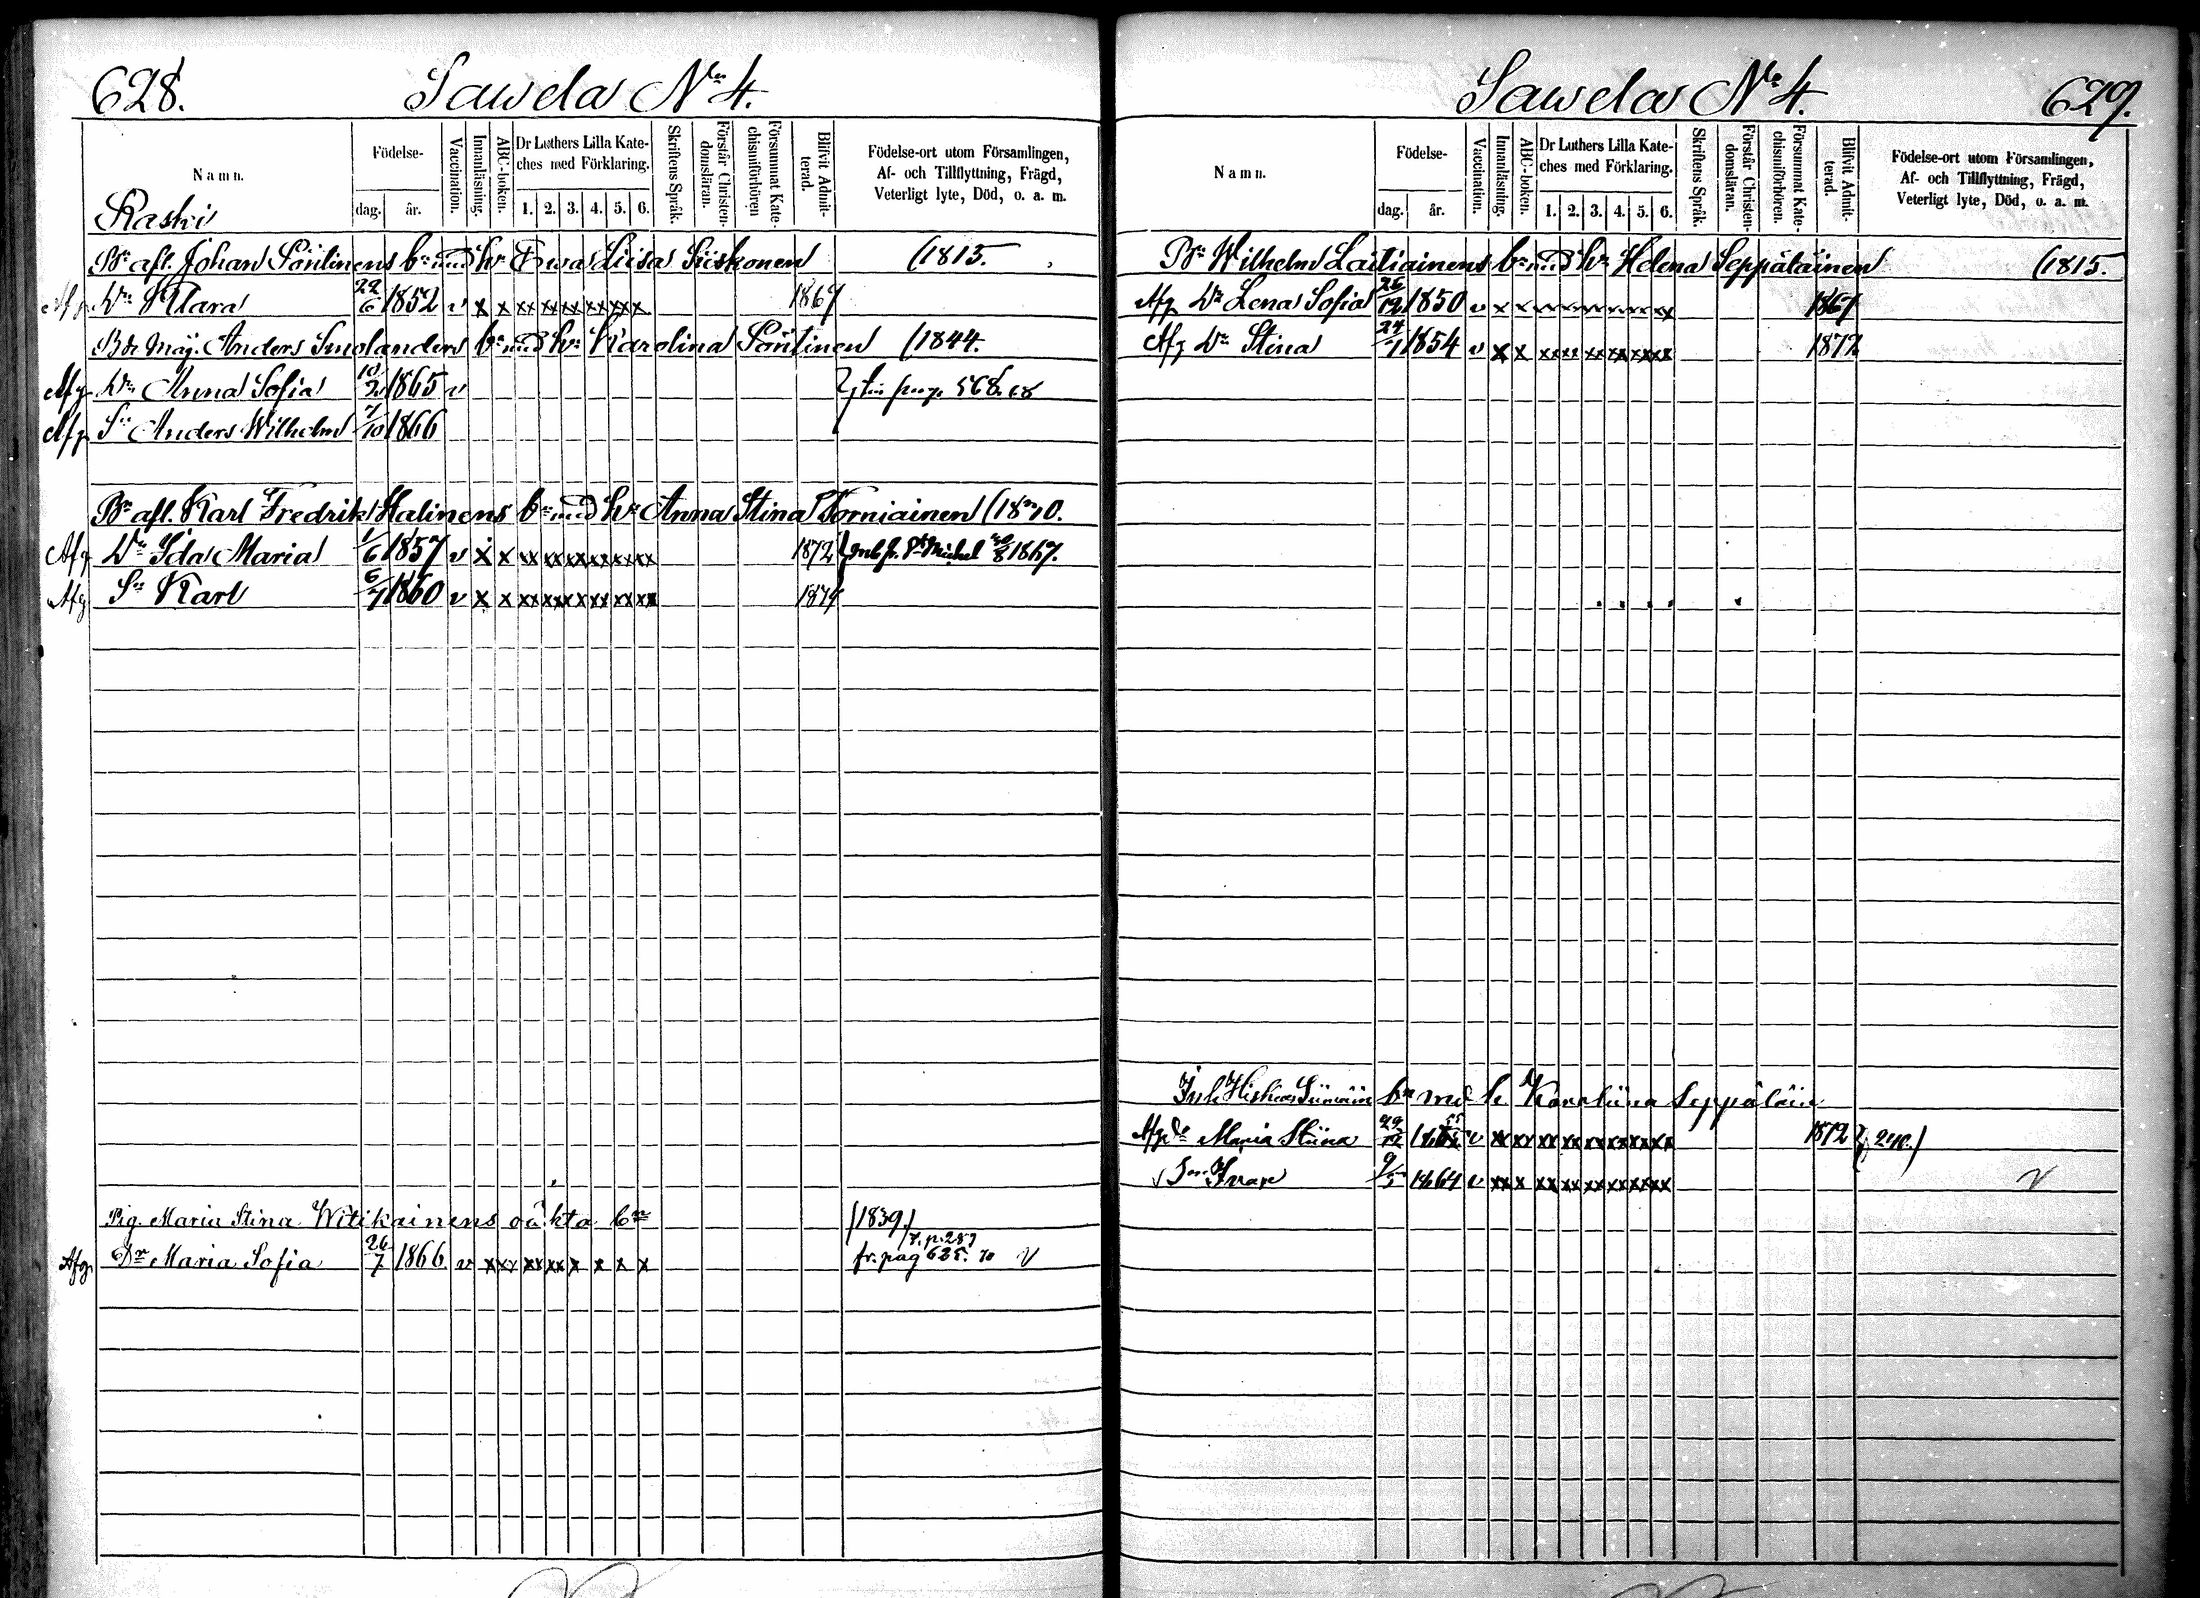 628. Sawela No 4.
Namn.
Födelse-
dag. år.
Vaccination.
Innanläsning.
ABC-boken.
Dr Luthers Lilla Kate-
ches med Förklaring.
1. 2. 3. 4. 5. 6.
Skriftens Språk.
Förstår Christen-
domsläran.
Försummat Kate-
chismiförhören
Blifvit Admit-
terad.
Födelse-ort utom Församlingen,
Af- och Tillflyttning, Frägd,
Veterligt lyte, Död, o. a. m.
Raski
Bn afl. Johan Pöntinens bn med hn Ewa Liisa Siiskonen (1813.
Afg Dr Klara 22/6 1852 v x x xx xx xx xx xx x 1867
Bde Måg. Anders Smolanders bn med hn Karolina Pöntinen (1844.
Afg Dr Anna Sofia 10/2 1865 v
Afg Sn Anders Wilhelm 7/10 1866
Bn afl. Karl Fredrik Halinens bn med hn Anna Stina Torniainen
Afg Dr Ida Maria 1/6 1857 v x x xx xx xx xx xx xx 1872 1867.
Afg Sn Karl 6/7 1860 v x x xx xx xx xx xx xx 1874
Pig. Maria Stina Witikainens oäkta bn (1839)
t. p. 289
Afg. Dr Maria Sofia 26/7 1866 v x xx xx xx x x x x fr. pag 625. 70 v
Sawela No 4. 629.
Namn.
Födelse-
dag. år.
Vaccination.
Innanläsning.
ABC-boken.
Dr Luthers Lilla Kate-
ches med Förklaring.
1. 2. 3. 4. 5. 6.
Skriftens Språk.
Förstår Christen-
domsläran.
Försummat Kate-
chismiförhören.
Blifvit Admit-
terad.
Födelse-ort utom Församlingen,
Af- och Tillflyttning, Frägd,
Veterligt lyte, Död, o. a. m.
Bn Wilhelm Laitiainens bn med hn Helena Seppätäinen (1815.
Afg Dr Lena Sofia 26/12 1850 v x x xx xx xx xx xx xx 1867
Afg Dr Stina 24/1 1854 v x x xx xx xx xx xx xx 1872
Inh bn med h Karoliina Seppäläin
Afg dr Maria Stiina 55 v xx xx xx xx xx xx xx xx 1872 240.)
Son Ivar 9/5 1864 v xx x xx xx xx xx xx xx v